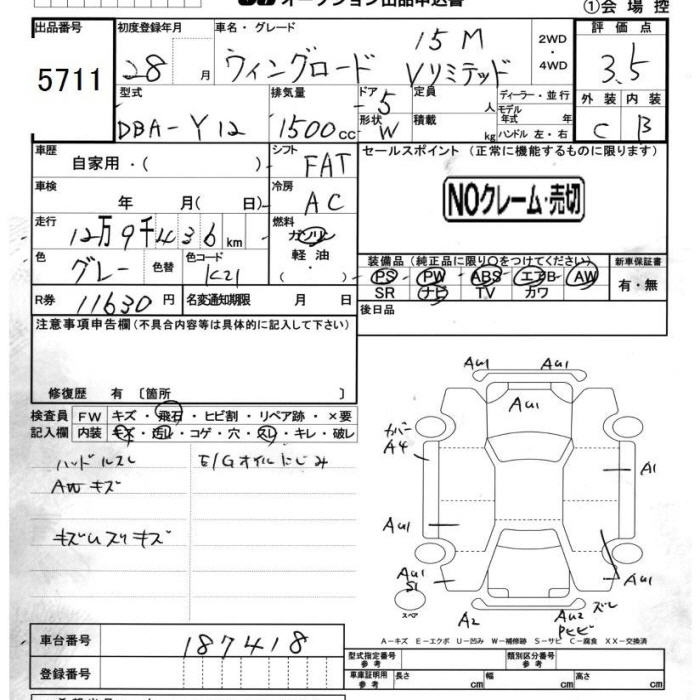 オークション出品申込書
①会場控
出品番号
5711
初度登録年月
28 月
車名・グレード
ウィングロード 15M Vリミテッド
2WD
・4WD
評価点
3.5
外装 内装
C B
型式
DBA-Y12
排気量
1500cc
ドア 5
形状 W
定員 人
積載 kg
ディーラー・並行
モデル年式 年
ハンドル 左・右
車歴
自家用・( )
シフト
FAT
車検
年 月( 日)
冷房
AC
走行
12万9千436km
燃料
ガソリン
軽油
・( )
色
グレー
色替
色コード
K21
R券 11630円
名変通知期限 月 日
セールスポイント (正常に機能するものに限ります)
NOクレーム・売切
装備品(純正品に限り○をつけてください)
PS・PW・ABS・エアB・AW
SR ナビ TV カワ
新車保証書
有・無
後日品
注意事項申告欄(不具合内容等は具体的に記入して下さい)
修復歴 有〔箇所 〕
検査員記入欄
FW キズ・飛石・ヒビ割・リペア跡・×要
内装 キズ・汚レ・コゲ・穴・スレ・キレ・破レ
ハンドルスレ
E/Gオイルにじみ
AWキズ
キズUスリキズ
AU1 AU1
AU1
カバー
A4
A1
AU1
AU1
S1
AU1
スペア
A2
AU2
ズレ
Pヒビ
A-キズ E-エクボ U-凹み W-補修跡 S-サビ C-腐食 XX-交換済
車台番号
187418
登録番号
型式指定番号
参考
類別区分番号
参考
車庫証明用
参考
長さ cm
幅 cm
高さ cm